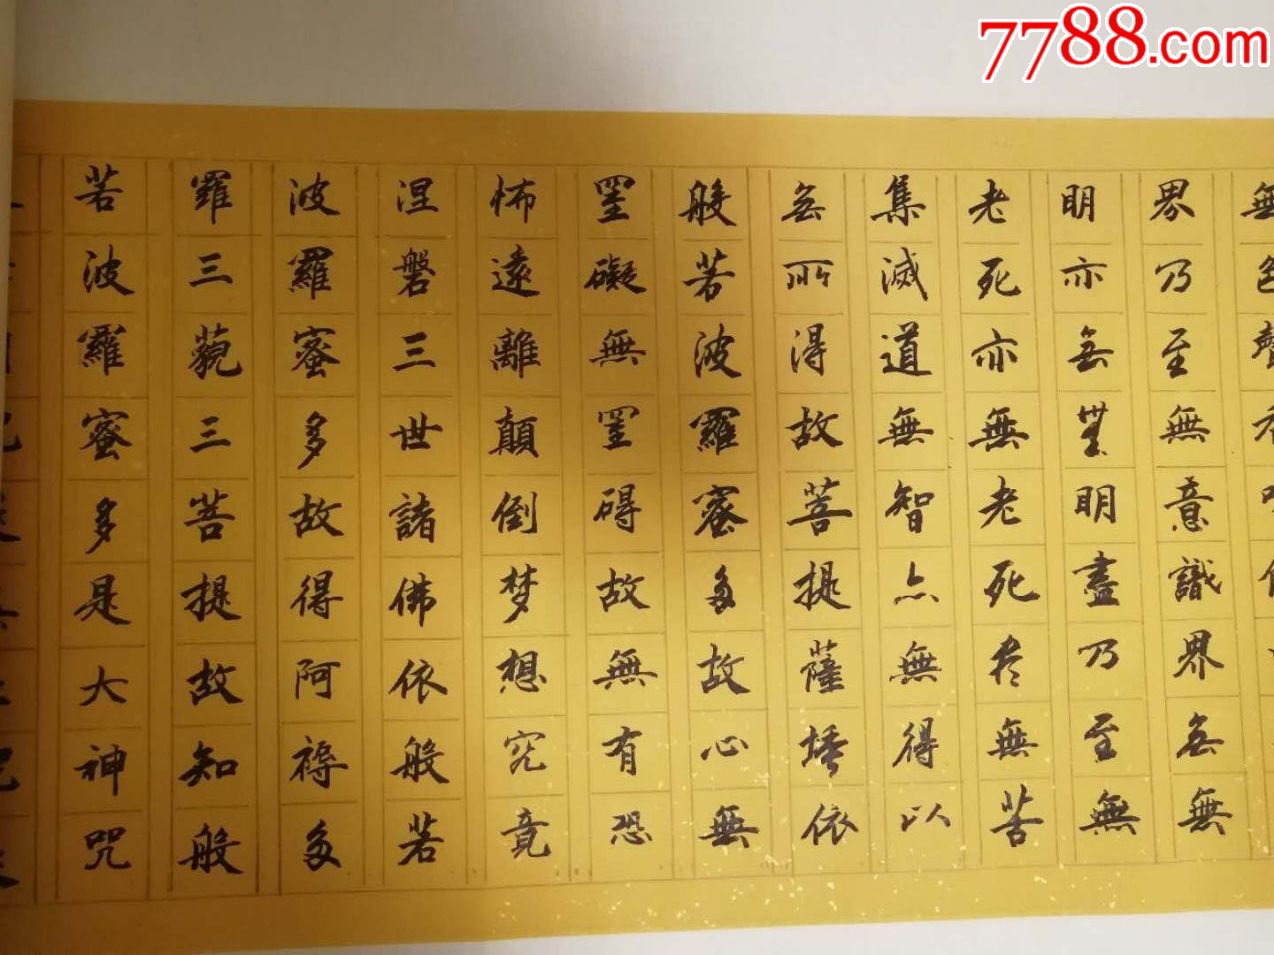 7788.com
無色聲香
界乃至無意識界無無
明亦無無明盡乃至無
老死亦無老死尽無苦
集滅道無智亦無得以
無所得故菩提薩埵依
般若波羅蜜多故心無
罣礙無罣碍故無有恐
怖遠離顛倒梦想究竟
涅磐三世諸佛依般若
波羅蜜多故得阿褥多
羅三藐三菩提故知般
若波羅蜜多是大神咒